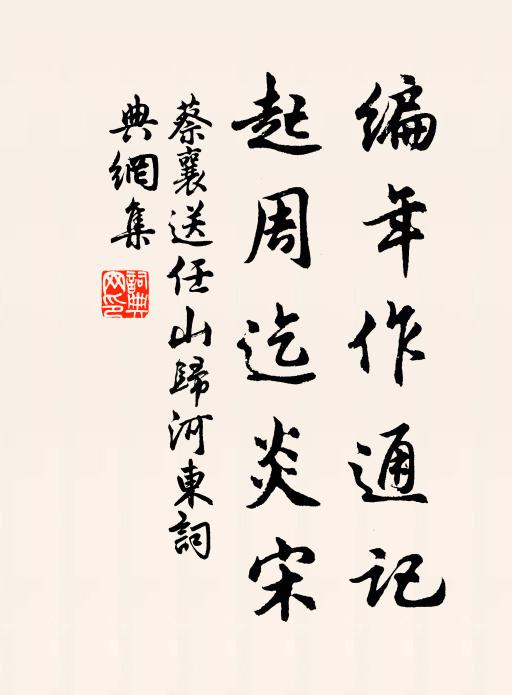 编年作通记
起周迄炎宋
蔡襄送任山歸河東詞
典網集
詞典
网印